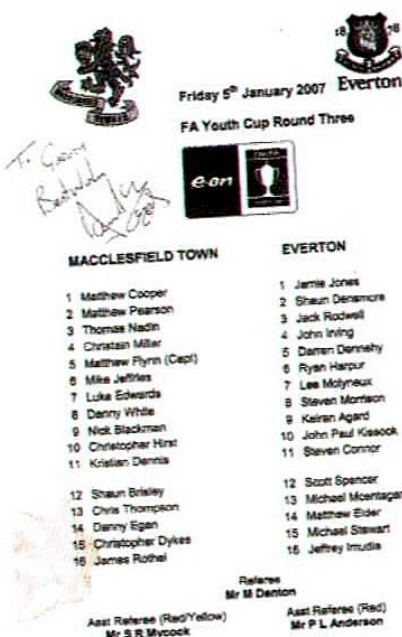 18 78
Everton
Friday 5th January 2007
FA Youth Cup Round Three
To
Best wishes
e·on
MACCLESFIELD TOWN
1 Matthew Cooper
2 Matthew Pearson
3 Thomas Nadin
4 Christain Millar
5 Matthew Flynn (Capt)
6 Mike Jeffries
7 Luke Edwards
8 Danny White
9 Nick Blackman
10 Christopher Hirst
11 Kristian Dennis
12 Shaun Brisley
13 Chris Thompson
14 Danny Egan
15 Christopher Dykes
16 James Rothel
EVERTON
1 Jamie Jones
2 Shaun Densmore
3 Jack Rodwell
4 John Irving
5 Darren Dennehy
6 Ryan Harpur
7 Lee Molyneux
8 Steven Morrison
9 Keiran Agard
10 John Paul Kissock
11 Steven Connor
12 Scott Spencer
13 Michael Mcentagar
14 Matthew Elder
15 Michael Stewart
16 Jeffrey Imudia
Referee
Mr M Denton
Asst Referee (Red/Yellow)
Mr S R Mycock
Asst Referee (Red)
Mr P L Anderson